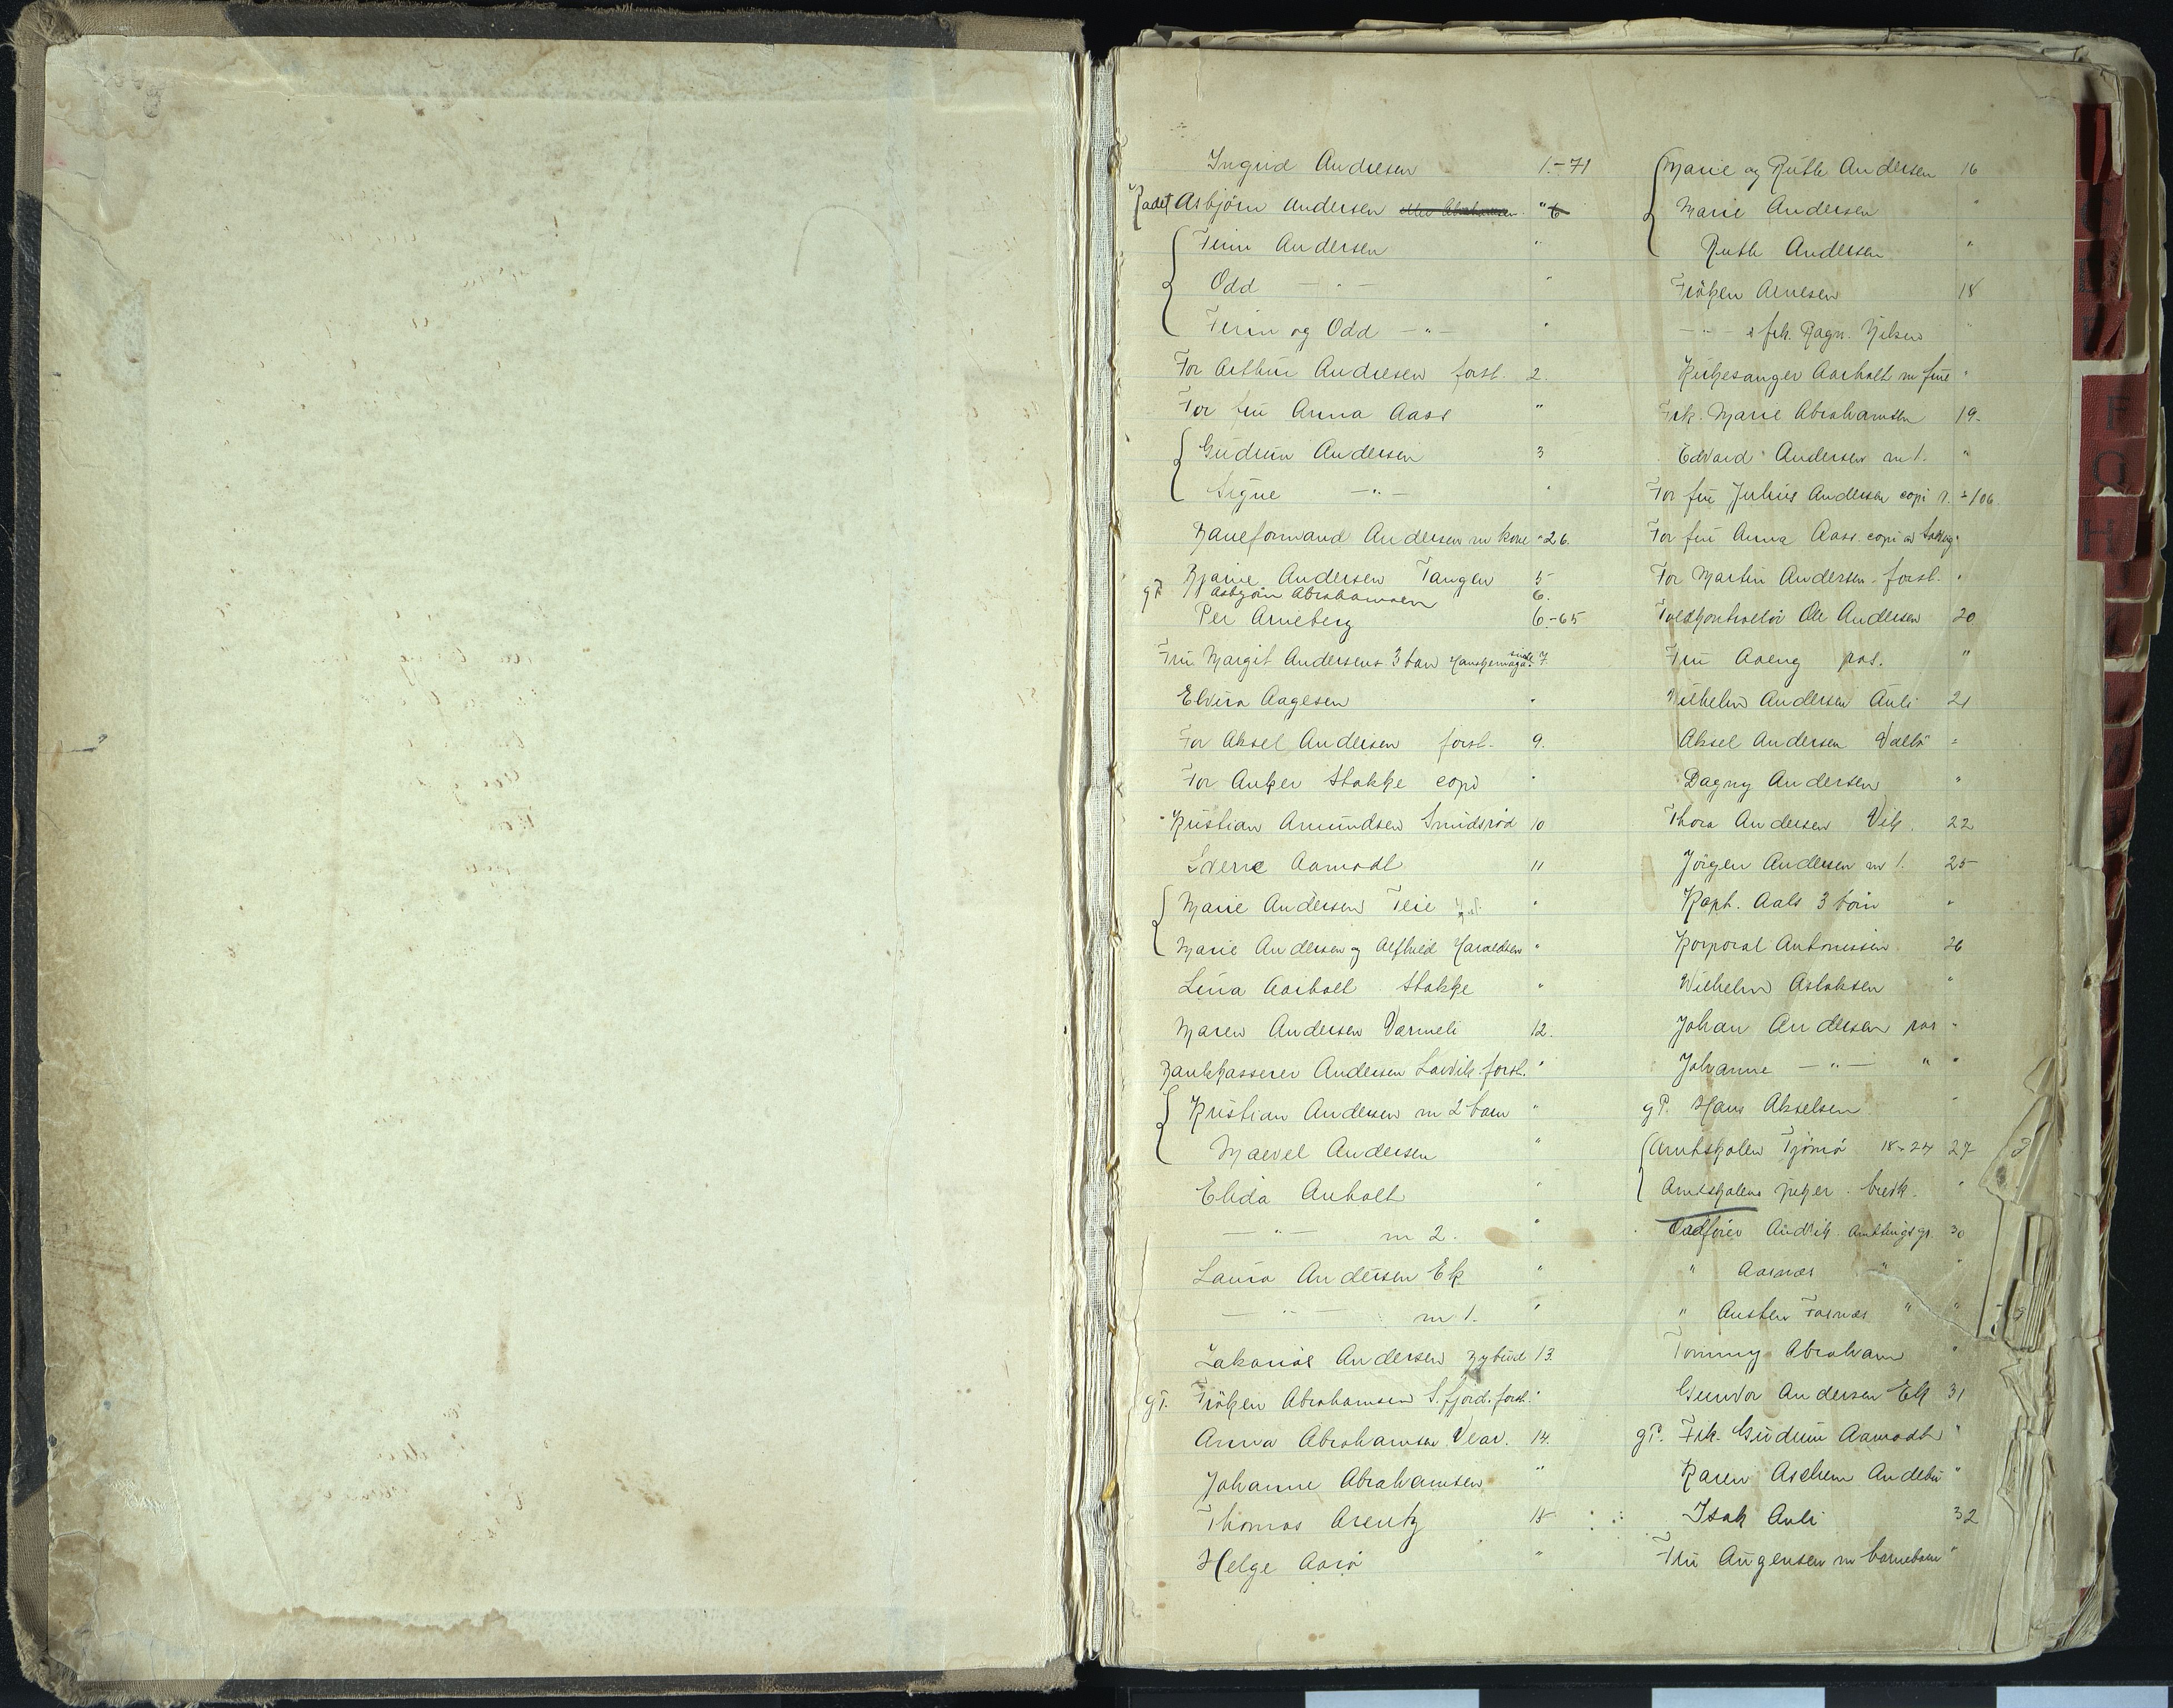 Ingrid Andresen 1.-71
Kadet Asbjörn Andersen "
Finn Andersen "
Odd — " — "
Finn og Odd — " — "
For Arthur Andresen forst. 2.
For fru Anna Aass "
Gudrun Andersen 3
Signe — " — "
Baneformand Andersen m kone " 26.
Bjarne Andersen Tangen 5
gP. Asbjörn Abrahamsen 6.
Per Arneberg 6.-65
Fru Margit Andersens 3 barn 7
Elvira Aagesen "
For Aksel Andersen forst. 9.
For Anker Stokke copi "
Kristian Amundsen Smidsröd 10
Sverre Aamodt 11
Marie Andersen Teie "
Marie Andersen og Alfhild Haraldsen "
Lina Aarholt Stokke "
Maren Andersen Varmeli 12.
Bankkasserer Andersen Larvik forst. "
Kristian Andersen m 2 barn "
Marvel Andersen "
Elida Anholt "
— " — m 2. "
Laura Andersen Ek "
— " — m 1. "
Zakarias Andersen Nybrud 13.
gP. Fröken Abrahamsen S.fjord. forst. "
Anna Abrahamsen Vear. 14.
Johanne Abrahamsen "
Thomas Arentz 15
Helge Aarö "
Marie og Ruth Andersen 16
Marie Andersen "
Ruth Andersen "
Fröken Arnesen 18
— " — & frk. Ragn. Nilsen "
Kirkesanger Aarholt m frue "
Frk. Marie Abrahamsen 19.
Edvard Andersen m 1. "
For fru Julius Andersen copi 106
For fru Anna Aass. copi "
For Martin Andersen forst. "
Toldkontrollör Ole Andersen 20
Fru Aaeng pas. "
Vilhelm Andersen Auli 21
Aksel Andersen Vallö "
Dagny Andersen "
Thora Andersen Vik. 22
Jörgen Andersen m 1. 25
Kapt. Aals 3 börn "
Korporal Antonissen 26
Wilhelm Aslaksen "
Johan Andersen pas "
Johanne — " — " "
gP. Hans Akselsen "
Amtskolen Tjömö 18-24 27
Amtskolens piker. brstk. "
Ordförer Andvik amtstingsgr. 30
" Aasnæs " "
" Austen Fosnæs " "
Tommy Abraham "
Gunvor Andersen Ek 31
gP. Frk. Gudrun Aamodt "
Karen Askjem Andebu "
Isak Auli 32
Fru Augensen m barnebarn "
F
G
H